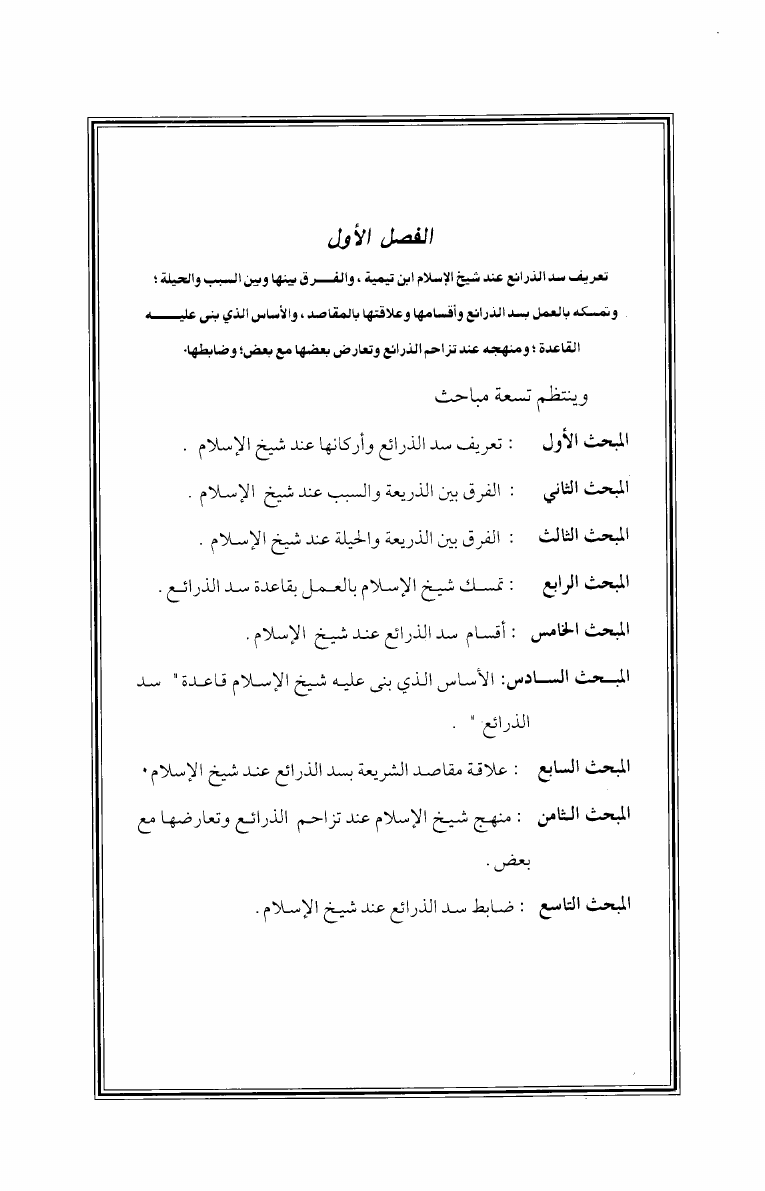 الفصل الأول
تعريف سد الذرائع عند شيخ الإسلام ابن تيمية ، والفـــرق بينها وبين السبب والحيلة ؛
وتمسكه بالعمل بسد الذرائع وأقسامها وعلاقتها بالمقاصد ، والأساس الذي بنى عليـــــه
القاعدة ؛ ومنهجه عند تزاحم الذرائع وتعارض بعضها مع بعض؛ وضابطها.
وينتظم تسعة مباحث
المبحث الأول : تعريف سد الذرائع وأركانها عند شيخ الإسلام .
المبحث الثاني : الفرق بين الذريعة والسبب عند شيخ الإسلام .
المبحث الثالث : الفرق بين الذريعة والحيلة عند شيخ الإسلام .
المبحث الرابع : تمسك شيخ الإسلام بالعمل بقاعدة سد الذرائع .
المبحث الخامس : أقسام سد الذرائع عند شيخ الإسلام .
المبـحث الســادس: الأساس الذي بنى عليه شيخ الإسلام قاعدة " سد
الذرائع " .
المبحث السابع : علاقة مقاصد الشريعة بسد الذرائع عند شيخ الإسلام .
المبحث الثامن : منهج شيخ الإسلام عند تزاحم الذرائع وتعارضها مع
بعض .
المبحث التاسع : ضابط سد الذرائع عند شيخ الإسلام .